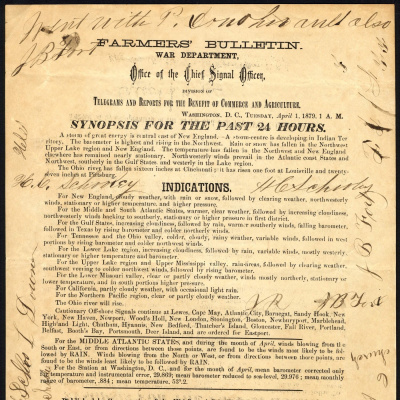 Went with P. Conch and also
FARMERS' BULLETIN.
WAR DEPARTMENT,
Office of the Chief Signal Officer,
DIVISION OF
TELEGRAMS AND REPORTS FOR THE BENEFIT OF COMMERCE AND AGRICULTURE.
WASHINGTON, D. C., TUESDAY, April 1, 1879, 1 A. M.
SYNOPSIS FOR THE PAST 24 HOURS.
A storm of great energy is central east of New England. A storm is developing in Indian Ter-
ritory. The barometer is highest and rising in the Northwest. Rain or snow has fallen in the Northwest
Upper Lake region and New England. The temperature has fallen in the Northwest and New England
elsewhere has remained nearly stationary. Northwesterly winds prevail in the Atlantic coast States and
Northwest, southerly in the Gulf States, and westerly in the Lake region.
The Ohio river has fallen sixteen inches at Cincinnati; it has risen one foot at Louisville and twenty-
seven inches at Pittsburg.
INDICATIONS.
For New England, cloudy weather, with rain or snow, followed by clearing weather, northwesterly
winds, stationary or higher temperature, and higher pressure.
For the Middle and South Atlantic States, warmer, clear weather, followed by increasing cloudiness,
northwesterly winds backing to southerly, stationary or higher pressure in first district.
For the Gulf States, increasing cloudiness, followed by rain, warmer southerly winds, falling barometer,
followed in Texas by winds shifting to westerly, and rising barometer.
For Tennessee and the Ohio valley, colder, cloudy, rainy weather, variable winds, followed in west
portions by rising barometer and colder northwest winds.
For the Lower Lake region, increasing cloudiness, followed by rain, variable winds, mostly westerly,
stationary or lower temperature and pressure.
For the Upper Lake region and Upper Mississippi valley, rain-areas, followed by clearing weather,
southwest veering to colder northwest winds, followed by rising barometer.
For the Lower Missouri valley, clear or partly cloudy weather, winds mostly northerly, stationary or
lower temperature, and in south portions higher pressure.
For California, partly cloudy weather, with occasional light rain.
For the Northern Pacific region, clear or partly cloudy weather.
The Ohio river will rise.
Cautionary Off-shore Signals continue at Lewes, Cape May, Atlantic City, Barnegat, Sandy Hook, New
York, New Haven, Newport, Wood's Holl, New London, Stonington, Boston, Newburyport, Marblehead,
Highland Light, Chatham, Hyannis, New Bedford, Thatcher's Island, Gloucester, Fall River, Portland,
Belfast, Booth's Bay, Portsmouth, Deer Island, and are ordered for Eastport.
For the MIDDLE ATLANTIC STATES, and during the month of April, winds blowing from the
South or East, or from directions between those points, are found to be the winds most likely to be fol-
lowed by RAIN. Winds blowing from the North or West, or from directions between those points, are
found to be the winds least likely to be followed by RAIN.
For the Station at Washington, D. C., and for the month of April, mean barometer corrected only
for temperature and instrumental error, 29.869; mean barometer reduced to sea-level, 29.976; mean monthly
range of barometer, .884; mean temperature, 53°.2.